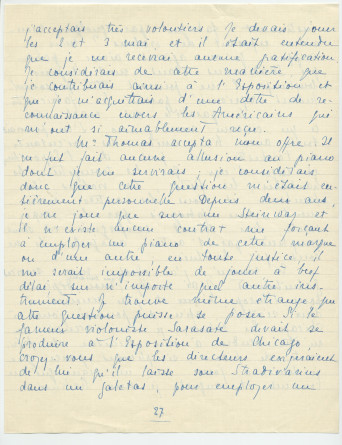 j'acceptais très volontiers. Je devais jouer
les 2 et 3 mai, et il était entendu
que je ne recevrai aucune gratification.
Je considérais de cette manière que
je contribuais ainsi à l'Exposition et
que je m'acquittais d'une dette de re-
connaissance envers les Américains qui
m'ont si aimablement reçu.
Mr Thomas accepta mon offre. Il
ne fut fait aucune allusion au piano
dont je me servirais, je considérais
donc que cette question m'était en-
tièrement personnelle. Depuis deux ans,
je ne joue que sur un Steinway et
il n'existe aucun contrat me forçant
à employer un piano de cette marque
ou d'une autre, en toute justice il
me serait impossible de jouer à bref
délai, sur n'importe quel autre ins-
trument. Je trouve même étrange que
cette question puisse se poser. Si le
fameux violoniste Sarasate devait se
produire à l'Exposition de Chicago,
croyez-vous que les directeurs exigeraient
de lui qu'il laisse son Stradivarius
dans un galetas, pour employer un
27